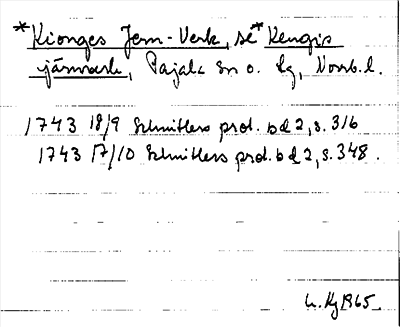 *Kionges Jern-Verk, se *Kengis
järnverk, Pajala sn o. lg, Norrb. l.
1743 18/9 Schnitlers prot. bd 2, s. 316
1743 17/10 Schnitlers prot. bd 2, s. 348.
1965